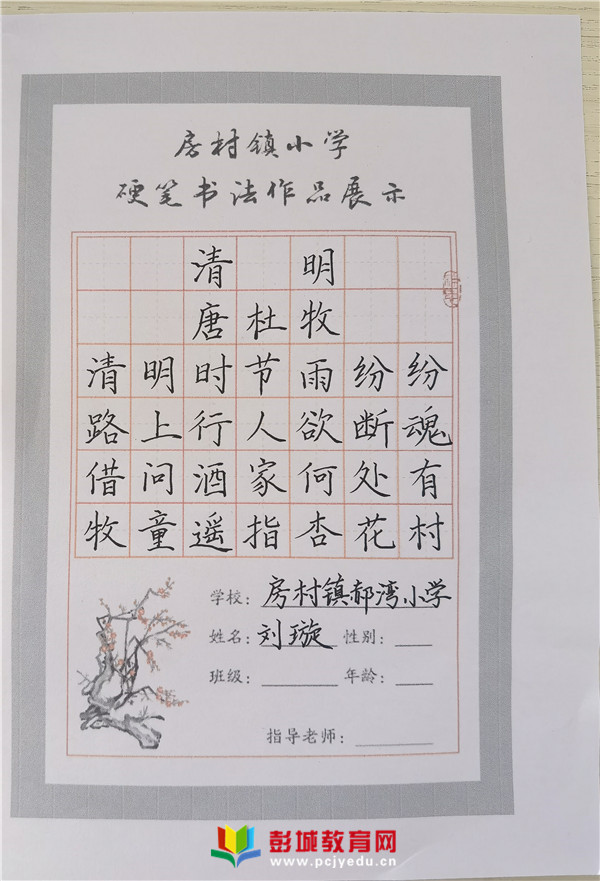 房村镇小学
硬笔书法作品展示
清 明
唐杜牧
清明时节雨纷纷
路上行人欲断魂
借问酒家何处有
牧童遥指杏花村
学校：房村镇郝湾小学
姓名：刘璇 性别：
班级： 年龄：
指导老师：
彭城教育网
www.pcjyedu.cn